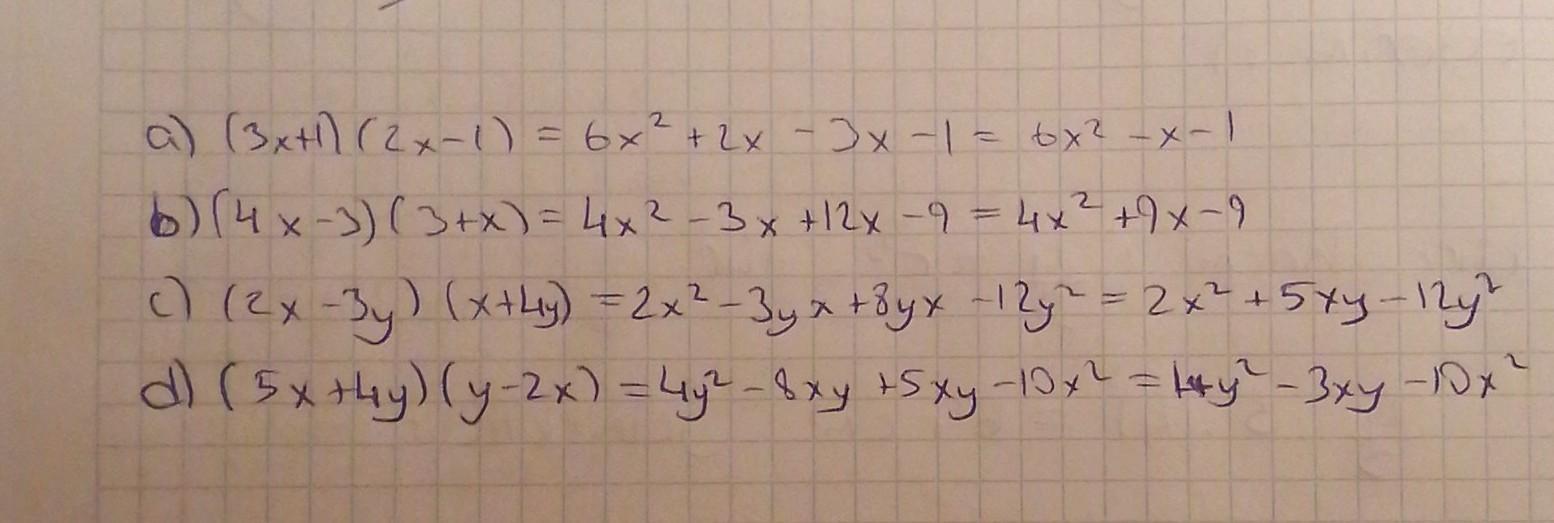 a) (3x+1)(2x-1) = 6x² + 2x - 3x - 1 = 6x² - x - 1
b) (4x-3)(3+x) = 4x² - 3x + 12x - 9 = 4x² + 9x - 9
c) (2x-3y)(x+4y) = 2x² - 3yx + 8yx - 12y² = 2x² + 5xy - 12y²
d) (5x+4y)(y-2x) = 4y² - 8xy + 5xy - 10x² = 4y² - 3xy - 10x²